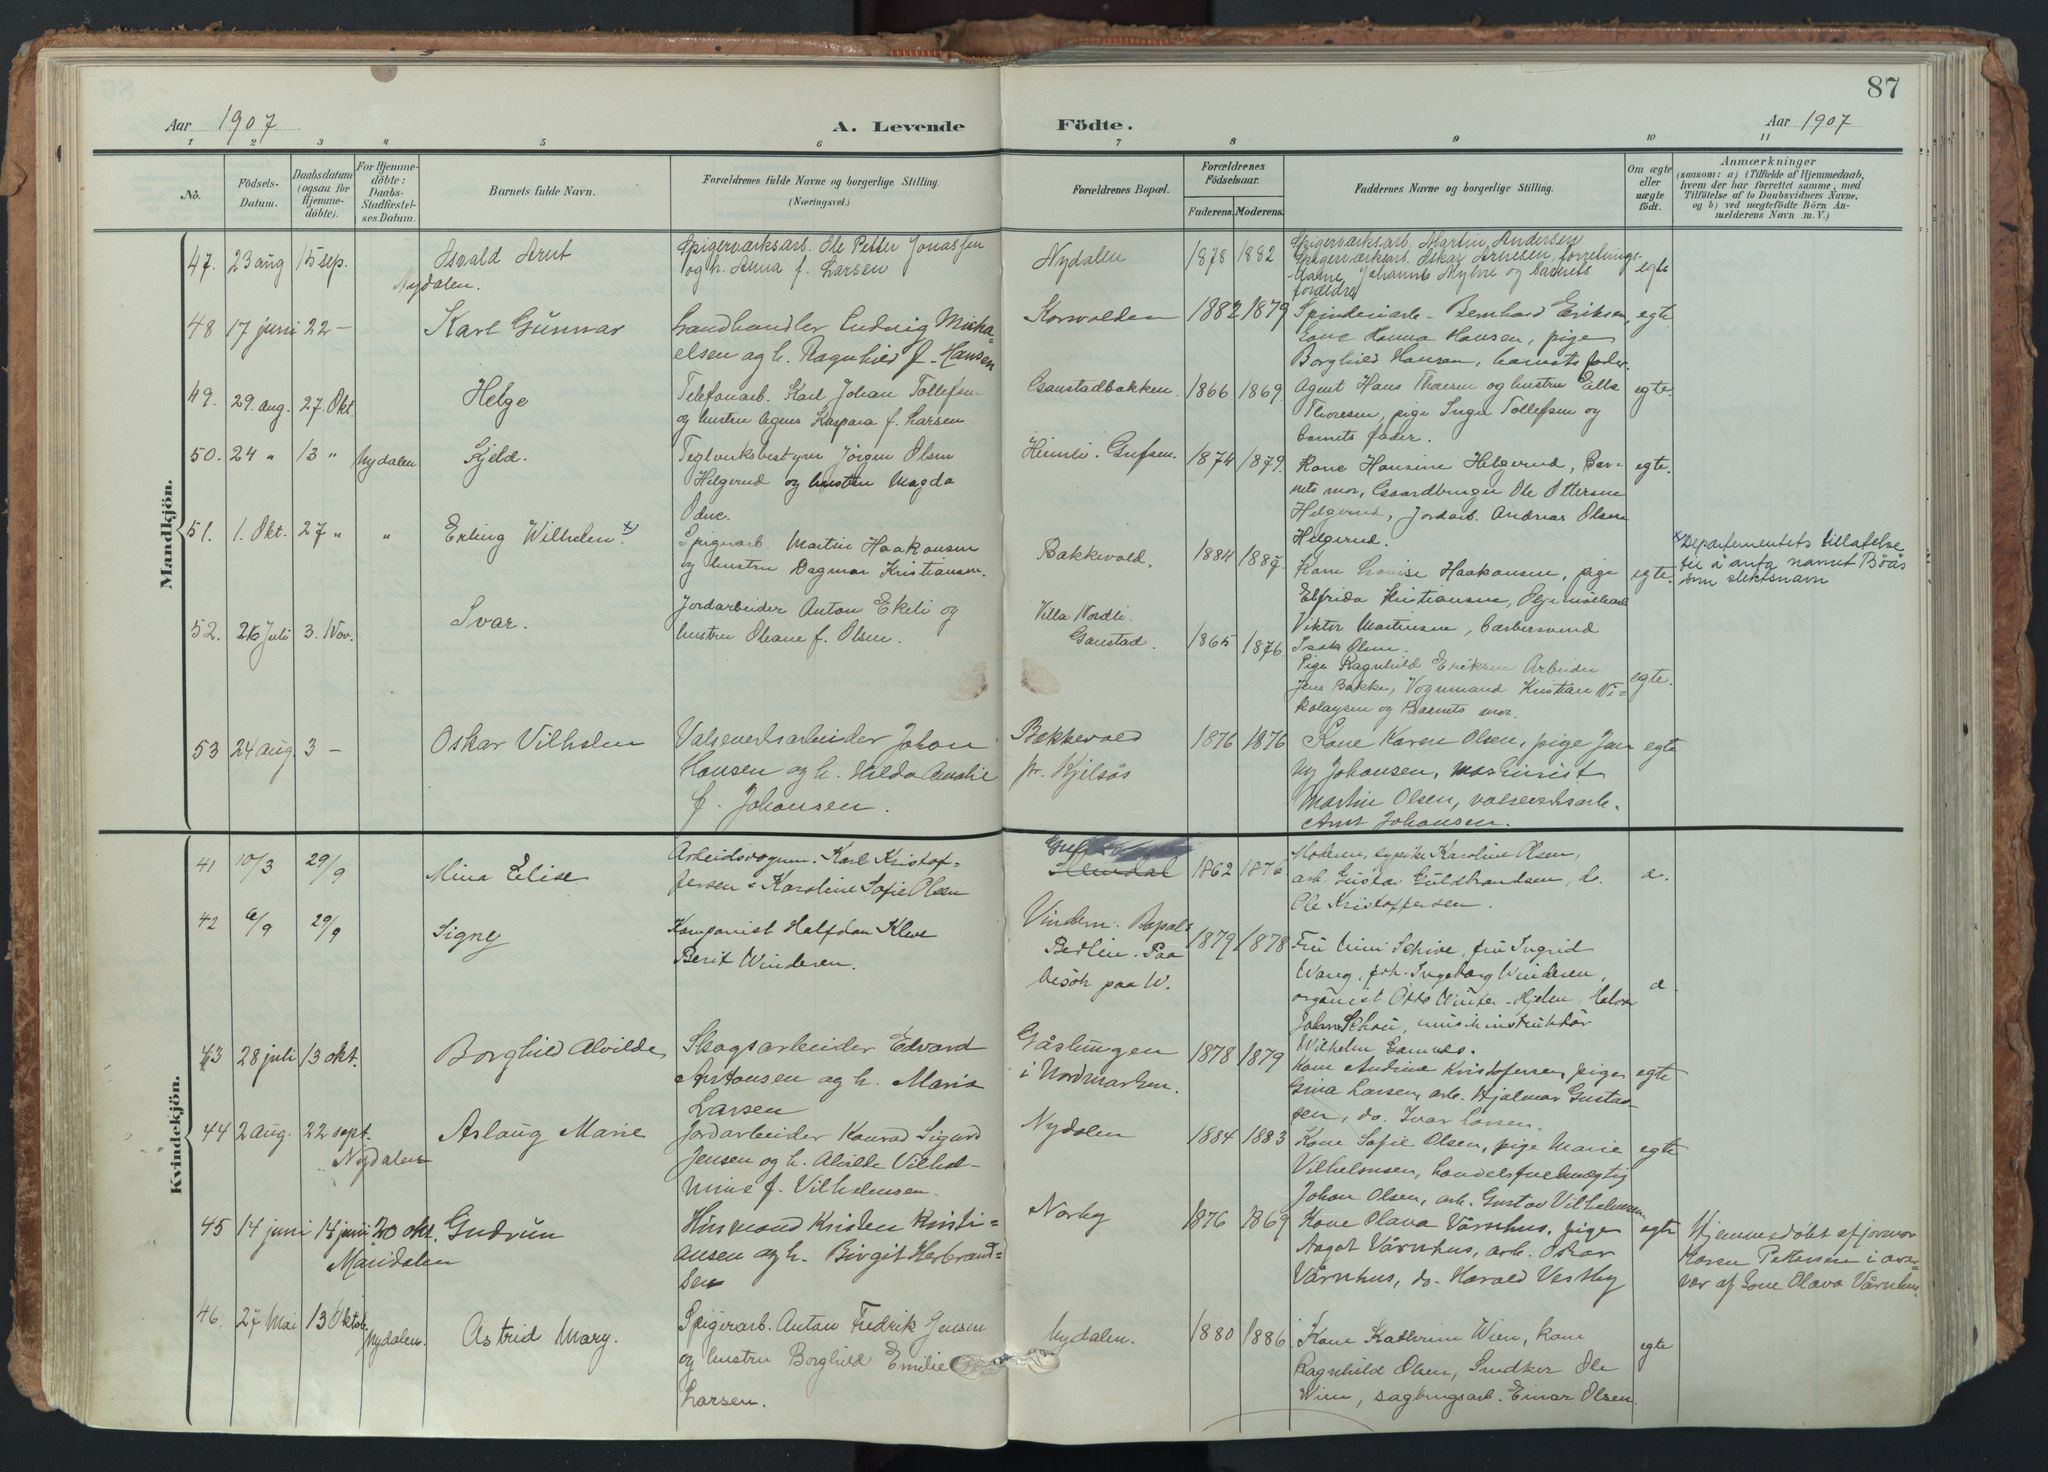 87
Aar 1907
A. Levende Födte.
Aar 1907
1 2 3 4 5 6 7 8 9 10 11
No.
Födsels-Datum.
Daabsdatum (ogsaa for Hjemmedöbte).
For Hjemmedöbte: Daabs-Stadfæstelses Datum.
Barnets fulde Navn.
Forældrenes fulde Navne og borgerlige Stilling.
(Næringsvei.)
Forældrenes Bopæl.
Forældrenes Födselsaar.
Faderens. Moderens.
Faddernes Navne og borgerlige Stilling.
Om ægte eller uægte födt.
Anmærkninger
(saasom: a) i Tilfælde af Hjemmedaab, hvem der har forrettet samme, med Tilföielse af to Daabsvidners Navne, og b) ved uægtefödte Börn Anmelderens Navn m. V.)
Mandkjön.
47. 23 aug 15 sep. Nydalen. Osvald Arnt
Spigerværksarb. Ole Petter Jonassen
og h. Anna f. Larsen
Nydalen 1878 1882
Spigerværksarb. Martin Andersen
Spigerværksarb. Oskar Arnesen, forretnings-
dame Johanne Myhre og barnets
forældre
egte
48 17 juni 22 – Karl Gunnar
Landhandler Ludvig Micha-
elsen og h. Ragnhild f. Hansen
Korsvolden 1882 1879
Spinderiarb. Bernhard Eriksen,
Kone Hanna Hansen, pige
Borghild Hansen, barnets fader.
egte
49. 29. aug. 27. Okt. Helge
Telefonarb. Karl Johan Tollefsen
og hustru Agnes Kaspara f. Larsen.
Gaustadbakken. 1866 1869.
Agent Hans Thoresen og hustru Ella
Thoresen, pige Inga Tollefsen og
barnets fader.
egte.
50. 24 " 13 " Nydalen Kjeld.
Teglverksbestyrer Jörgen Olsen
Helgerud og hustru Magda
Heimli. Grefsen. 1874 1879.
Kone Hansine Helgerud, Bar-
nets mor, Gaardbruger Ole Ottersen
Helgerud, Jordarb. Andreas Olsen
Helgerud.
egte.
51. 1. Okt. 27 " " Erling Wilhelm. x)
Spigerarb. Martin Haakonsen
og hustru Dagmar Kristiansen.
Bakkevold. 1884 1887.
Kone Lovise Haakonsen, pige
Elfrida Kristiansen,
Viktor Martinsen, barbersvend
Isak Olsen.
egte.
x) Departementets tillatelse
til å anta namet Böås
som slektsnavn
52. 26 Juli 3. Nov. Ivar.
Jordarbeider Anton Ekeli og
hustru Oliane f. Olsen.
Villa Nordli
Gaustad. 1865 1876.
Pige Ragnhild Eriksen Arbeider
Jens Bakke, Vognmand Kristian Ni-
kolaysen og Barnets mor.
egte.
53 24 aug. 3 – Oskar Vilhelm
Valseverksarbeider Johan
Hansen og h. Hilda Amalie
f. Johansen.
Bakkevold
pr. Kjelsås 1876 1876
Kone Karen Olsen, pige Jen-
ny Johansen, maskinist
Martin Olsen, valseverksarb.
Arnt Johansen.
egte
Kvindekjön.
41 10/3 29/9 Mina Elise
Arbeidsvognm. Karl Kristof-
fersen & Karoline Sofie Olsen
1862 1876
Moderen, Karoline Olsen,
arb. Gustav Guldbrandsen, do.
Ole Kristoffersen.
42 6/9 29/9 Signy
Komponist Halfdan Kleve
Berit Winderen.
Vindern. Bopæl
Berlin. Paa
besök paa W. 1879 1878
Fru Mimi Schive, fru Ingrid
Wang, frk. Ingeborg Winderen,
organist Otto Winter-Hjelm, Halvor
Schou, musikinstruktör
Wilhelm
43 28 juli 13 okt. Borghild Alvilde
Skogsarbeider Edvard
Antonsen og h. Maria
Larsen
Gåslungen
i Nordmarken. 1878 1879
Kone Andine Kristofersen, pige
Gina Larsen, arb. Hjalmar Gustav-
sen, do. Ivar Larsen.
egte
44 2 aug. 22 sept. Nydalen Aslaug Marie
Jordarbeider Konrad Sigurd
Jensen og h. Alvilde Vilhel-
mine f. Vilhelmsen.
Nydalen 1884 1883
Kone Sofie Olsen, pige Marie
Vilhelmsen, handelsfuldmægtig
Johan Olsen, arb. Gustav Vilhelmsen
egte
45 14 juni 14 juni 20 okt. Maridalen Gudrun
Husmand Kristen Kristi-
ansen og h. Birgit Herbrand-
sen
Norby 1876 1869
Kone Olava Vårnhus, pige
Aagot Vårnhus, arb. Oskar
Vårnhus, do. Harald Vestby
egte
Hjemmedöbt af jormor
Karen Pettersen i over-
vær af kone Olava Vårnhus.
46. 27 Mai 13 Oktob. Nydalen. Astrid Mary.
Spigerarb. Anton Fredrik Jensen
og hustru Borghild Emilie
Larsen.
Nydalen. 1880 1886
Kone Kathrine Wien, kone
Ragnhild Olsen, Snedker Ole
Wien, sagbrugsarb. Einar Olsen.
egte